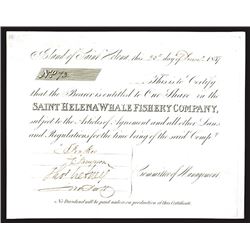 Island of Saint Helena this 28th day of Decr. 1837
No. 73
This is to Certify
that the Bearer is entitled to One Share in the
SAINT HELENA WHALE FISHERY COMPANY,
subject to the Articles of Agreement and all other Laws
and Regulations for the time being of the said Compy.
Committee of Management
No Dividend will be paid without the production of this Certificate.